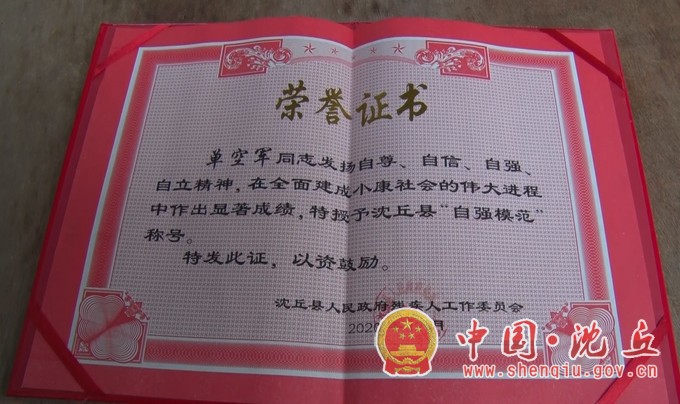 荣誉证书
单空军同志发扬自尊、自信、自强、
自立精神,在全面建成小康社会的伟大进程
中作出显著成绩,特授予沈丘县“自强模范”
称号。
特发此证,以资鼓励。
沈丘县人民政府残疾人工作委员会
202 月
中国·沈丘
www.shenqiu.gov.cn